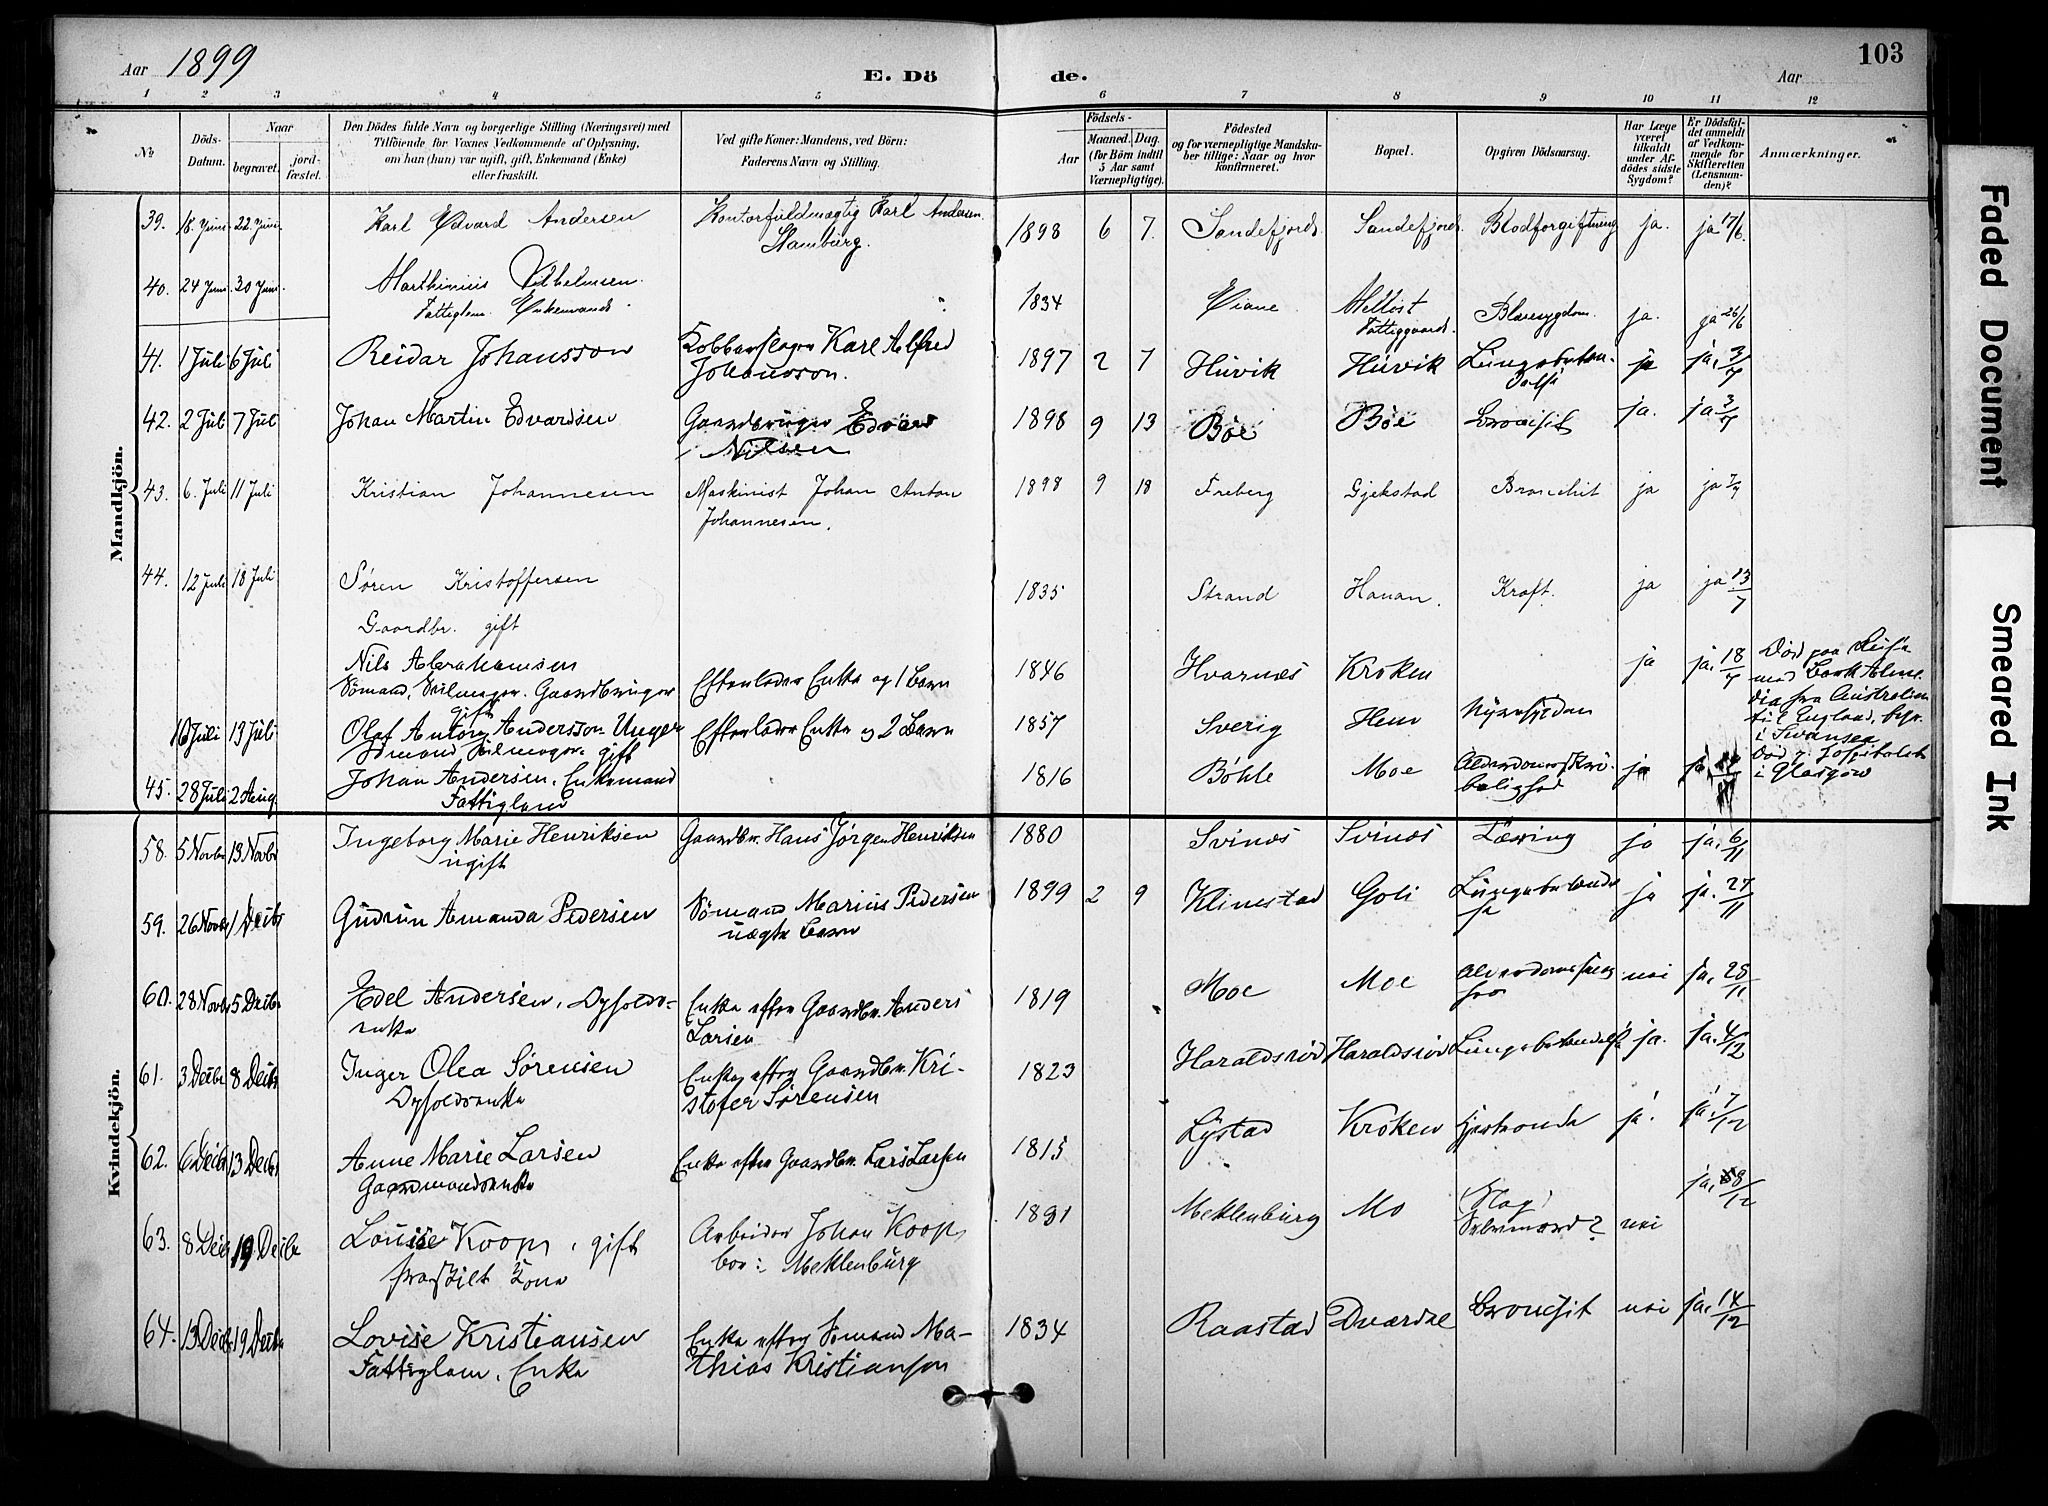 Aar 1899
E. Dö
de.
Aar
103
1 2 3 4 5 6 7 8 9 10 11 12
No
Döds-Datum.
Naar
begravet.
jord-fæstet.
Den Dödes fulde Navn og borgerlige Stilling (Næringsvei) med
Tilföiende for Voxnes Vedkommende af Oplysning,
om han (hun) var ugift, gift, Enkemand (Enke)
eller fraskilt.
Ved gifte Koner: Mandens, ved Börn:
Faderens Navn og Stilling.
Födsels-
Aar
Maaned. Dag.
(for Börn indtil
5 Aar samt
Værnepligtige).
Födested
og for værnepligtige Mandska-
ber tillige: Naar og hvor
konfirmeret.
Bopæl.
Opgiven Dödsaarsag.
Har Læge
været
tilkaldt
under Af-
dödes sidste
Sygdom?
Er Dödsfal-
det anmeldt
af Vedkom-
mende for
Skifteretten
(Lensman-
den)?
Anmærkninger.
Mandkjön.
39. 18. Juni 22. Juni. Karl Edvard Andersen Kontorfuldmægtig Karl Andersen 1898 6 7. Sandefjord. Sandefjord. Blodforgiftning ja. ja 17/6.
Hamburg.
40. 24 Juni. 30 Juni. Marthinius Vilhelmsen. 1834 Øiane Mellost Blæresygdom. ja. ja 26/6
Fattiglem. Enkemand. Fattiggaard.
41. 1 Juli 6 Juli Reidar Johansson Kobberslager Karl Alfred 1897 2 7 Huvik Huvik ja ja. 3/7
Johansson.
42. 2 Juli 7 Juli Johan Martin Edvardsen Gaardbruger Edvard 1898 9 13 Bøe Bøe Bronchit ja. ja 3/7
Nilsen
43. 6. Juli 11 Juli Kristian Johannesen Maskinist Johan Anton 1898 9 18 Freberg Gjekstad Bronchit ja ja 7/7
Johannesen.
44. 12 Juli 18 Juli Søren Kristoffersen 1835 Strand Hauan. Kræft. ja ja 13/7
Gaardbr. gift
Nils Abrahamsen Efterlader Enke og 1 Barn 1846 Hvarnes Kroken ja ja. 18/7 Død paa Reise
Sømand, Seilmager. Gaardbruger med Bark
gift fra Australien
til England, begr.
i Swansea
16 Juli 13 Juli Olaf Anton Andersson Unger Efterlader Enke og 2 Barn 1857 Sverig Hem Nyresygdom Død
Sømand Seilmager. gift i Glasgow
45. 28 Juli 2 Aug. Johan Andersen. Enkemand 1816 Bøhle Moe ja ja
Fattiglem
Kvindekjön.
58. 5 Novbr 13 Novbr Ingeborg Marie Henriksen Gaardbr. Hans Jørgen Henriksen 1880 Svines Svines Tæring ja ja. 6/11
ugift
59. 26 Novbr 1 Decbr Gudrun Amanda Pedersen Sømand Marius Pedersen 1899 2 9 Klinestad Goli Lungebetændelse ja ja. 27/11
uægte Barn
60. 28 Novbr 5 Decbr Edel Andersen, Oyfolds- Enke efter Gaardbr. Anders 1819 Moe Moe nei ja.
enke Larsen
61. 3 Decbr 8 Decbr Inger Olea Sørensen Enke efter Gaardbr. Kri- 1823 Haraldsrød Haraldsrød Lungebetændelse ja. ja. 4/12
Oyfoldsenke stofer Sørensen
62. 6 Decbr 13 Decbr Anne Marie Larsen Enke efter Gaardbr. Lars Larsen 1815 Lystad Kroken ja. ja. 7/12
Gaardmandsenke
63. 8 Decbr 19 Decbr Louise Koop, gift Arbeider Johan Koop, Meklenburg Mo Slag, nei ja. 8/12
fraskilt Kone boer i Meklenburg Selvmord?
64. 13 Decbr 19 Decbr Lovise Kristiansen Enke efter Sømand Ma- 1834 Raastad Dverdal Bronchit nei ja. 14/12
Fattiglem. Enke thias Kristiansen
Faded Document
Smeared Ink